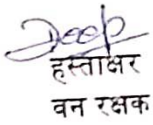 Deep
हस्ताक्षर
वन रक्षक